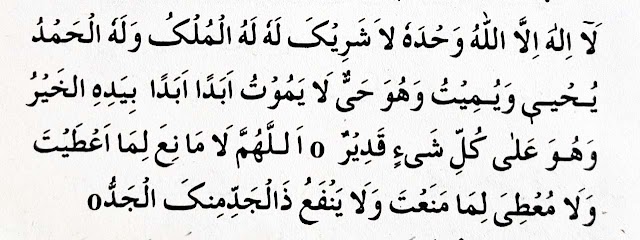 لَآ اِلٰهَ اِلَّا اللّٰهُ وَحْدَهٗ لَا شَرِيْکَ لَهٗ لَهُ الْمُلْکُ وَلَهُ الْحَمْدُ
يُحْيِيْ وَيُمِيْتُ وَهُوَ حَیٌّ لَا يَمُوْتُ اَبَدًا اَبَدًا بِيَدِهِ الْخَيْرُ
وَهُوَ عَلٰى کُلِّ شَیْءٍ قَدِيْرٌ o اَللّٰهُمَّ لَا مَانِعَ لِمَا اَعْطَيْتَ
وَلَا مُعْطِیَ لِمَا مَنَعْتَ وَلَا يَنْفَعُ ذَالْجَدِّمِنکَ الْجَدُّ o